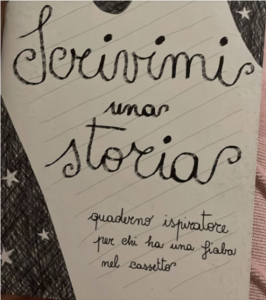 Scrivimi
una
storia
quaderno ispiratore
per chi ha una fiaba
nel cassetto